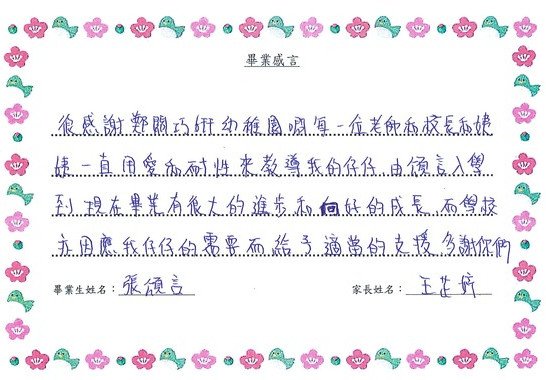 畢業感言
很感謝鄭關巧妍幼稚園嘅每一位老師和校長和姨
姨一直用愛和耐性來教導我的仔仔 由頌言入學
到現在畢業有很大的進步和向好的成長 而學校
亦因應我仔仔的需要而給予適當的支援 多謝你們
畢業生姓名：張頌言 家長姓名：王芷婷